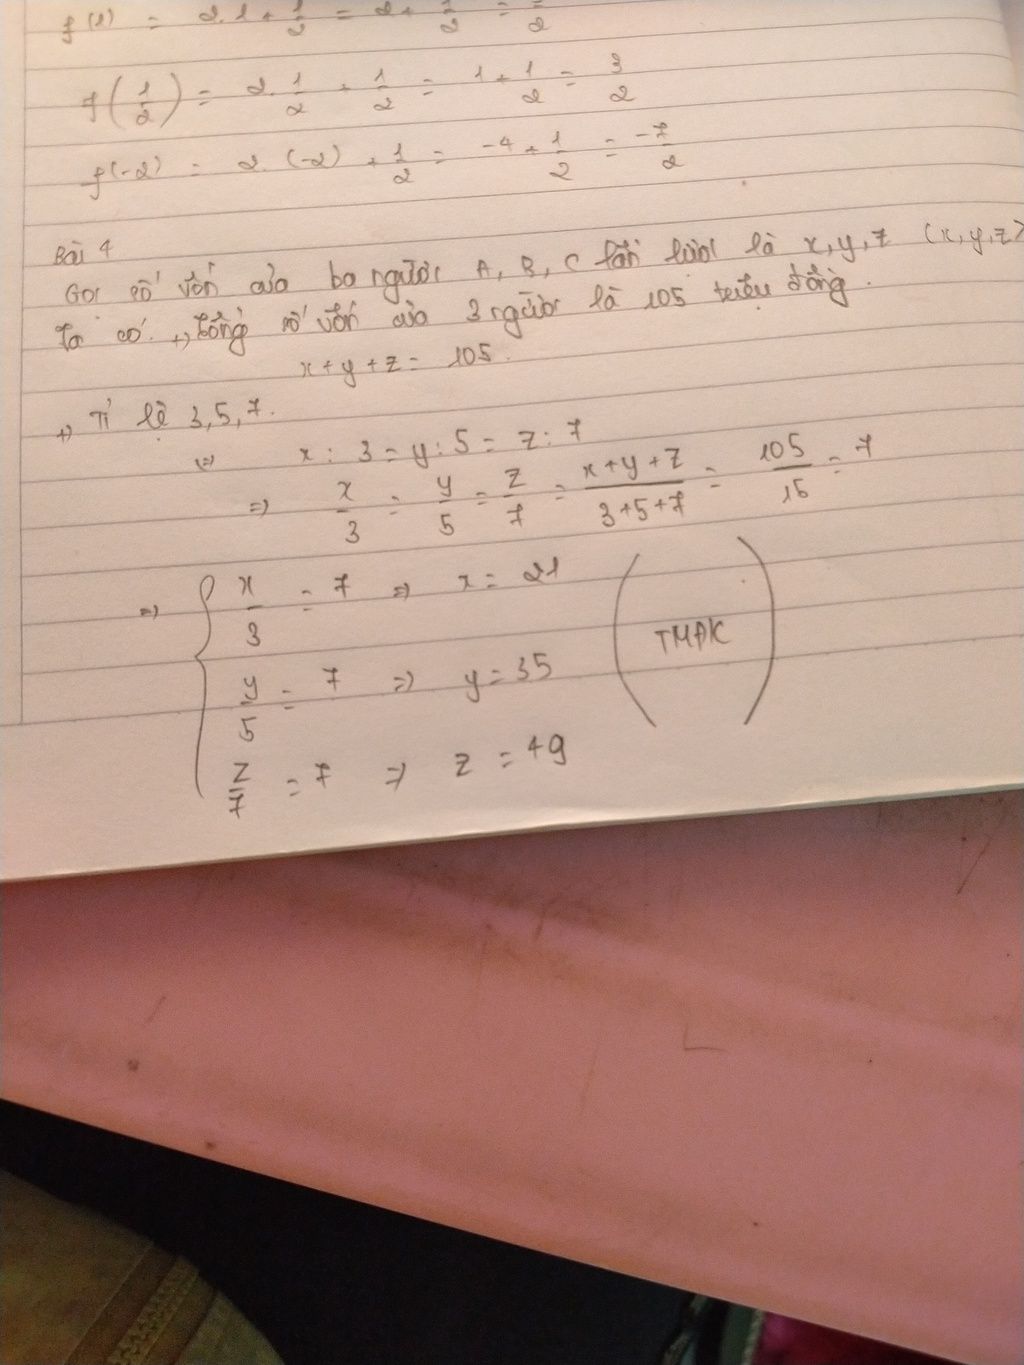 f(1) = 2.1 + 1/2 = 2 + 1/2 = /2
f(1/2) = 2. 1/2 + 1/2 = 1 + 1/2 = 3/2
f(-2) = 2. (-2) + 1/2 = -4 + 1/2 = -7/2
Bài 4
Gọi số vốn của ba người A, B, C lần lượt là x, y, z (x, y, z>
Ta có. +, tổng số vốn của 3 người là 105 triệu đồng.
x + y + z = 105.
+, Tỉ lệ 3, 5, 7.
(=) x : 3 = y : 5 = z : 7
=) x/3 = y/5 = z/7 = x + y + z / 3 + 5 + 7 = 105/15 = 7
=) { x/3 = 7 =) x = 21
y/5 = 7 =) y = 35 (TMĐK)
z/7 = 7 =) z = 49